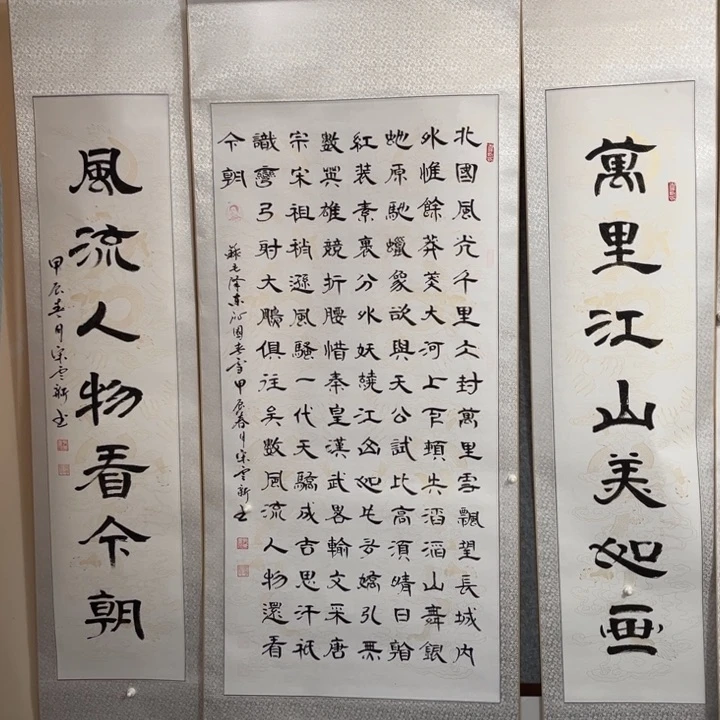 萬里江山美如画
北國風光千里冰封萬里雪飄望長城内
外惟餘莽莽大河上下頓失滔滔山舞銀
虵原馳蠟象欲與天公試比高須晴日看
紅装素裹分外妖繞江山如此多嬌引無
數英雄競折腰惜秦皇漢武畧輸文采唐
宗宋祖稍遜風騷一代天驕成吉思汗衹
識彎弓射大鵰俱往矣數風流人物還看
今朝
錄毛泽東沁園春雪甲辰春月宋雲新书
風流人物看今朝
甲辰春月宋雲新书